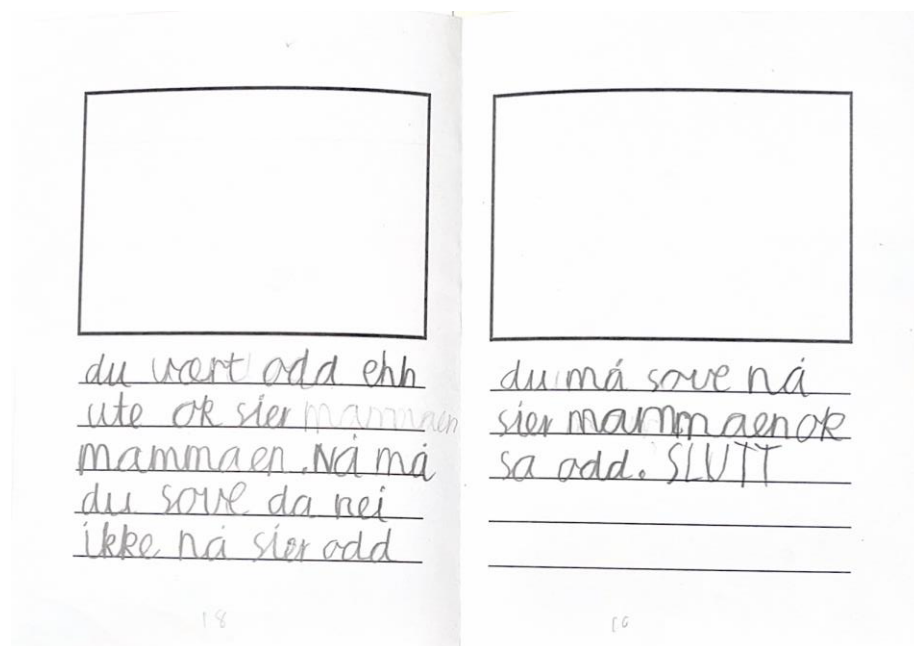 du vært odd ehh
ute ok sier mammaen
mammaen. Nå må
du sove da nei
ikke nå sier odd
18
du må sove nå
sier mammaen ok
sa odd. SLUTT